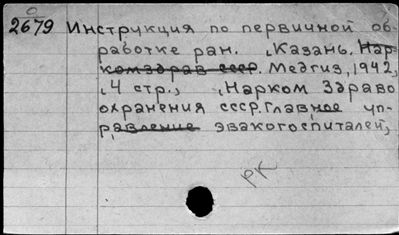 2679 Инструкция по первичной об-
работке ран. Казань. Нар-
комздрав ссср. Медгиз, 1942,
4 стр., Нарком Здраво
охранения ссср. Главное уп-
равление эвакогоспиталей,
РК